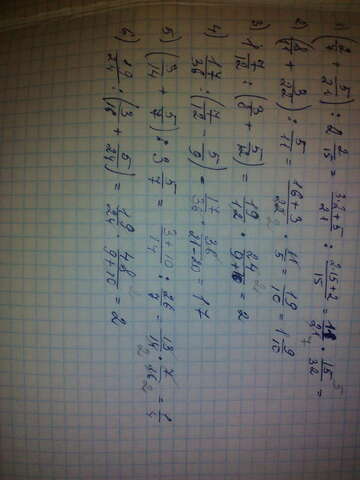 1) (2/7 + 5/21) : 2 2/15 = (3·2+5)/21 : (2·15+2)/15 = 11/21 · 15/32 =
2) (8/11 + 3/22) : 5/11 = (16+3)/22 · 11/5 = 19/10 = 1 9/10
3) 1 7/12 : (3/8 + 5/12) = 19/12 · 24/(9+10) = 2
4) 17/36 : (7/12 - 5/9) = 17/36 · 36/(21-20) = 17
5) (3/14 + 5/7) : 3 5/7 = (3+10)/14 : 26/7 = 13/14 · 7/26 = 1/4
6) 19/24 : (3/16 + 5/24) = 19/24 · 48/(9+10) = 2